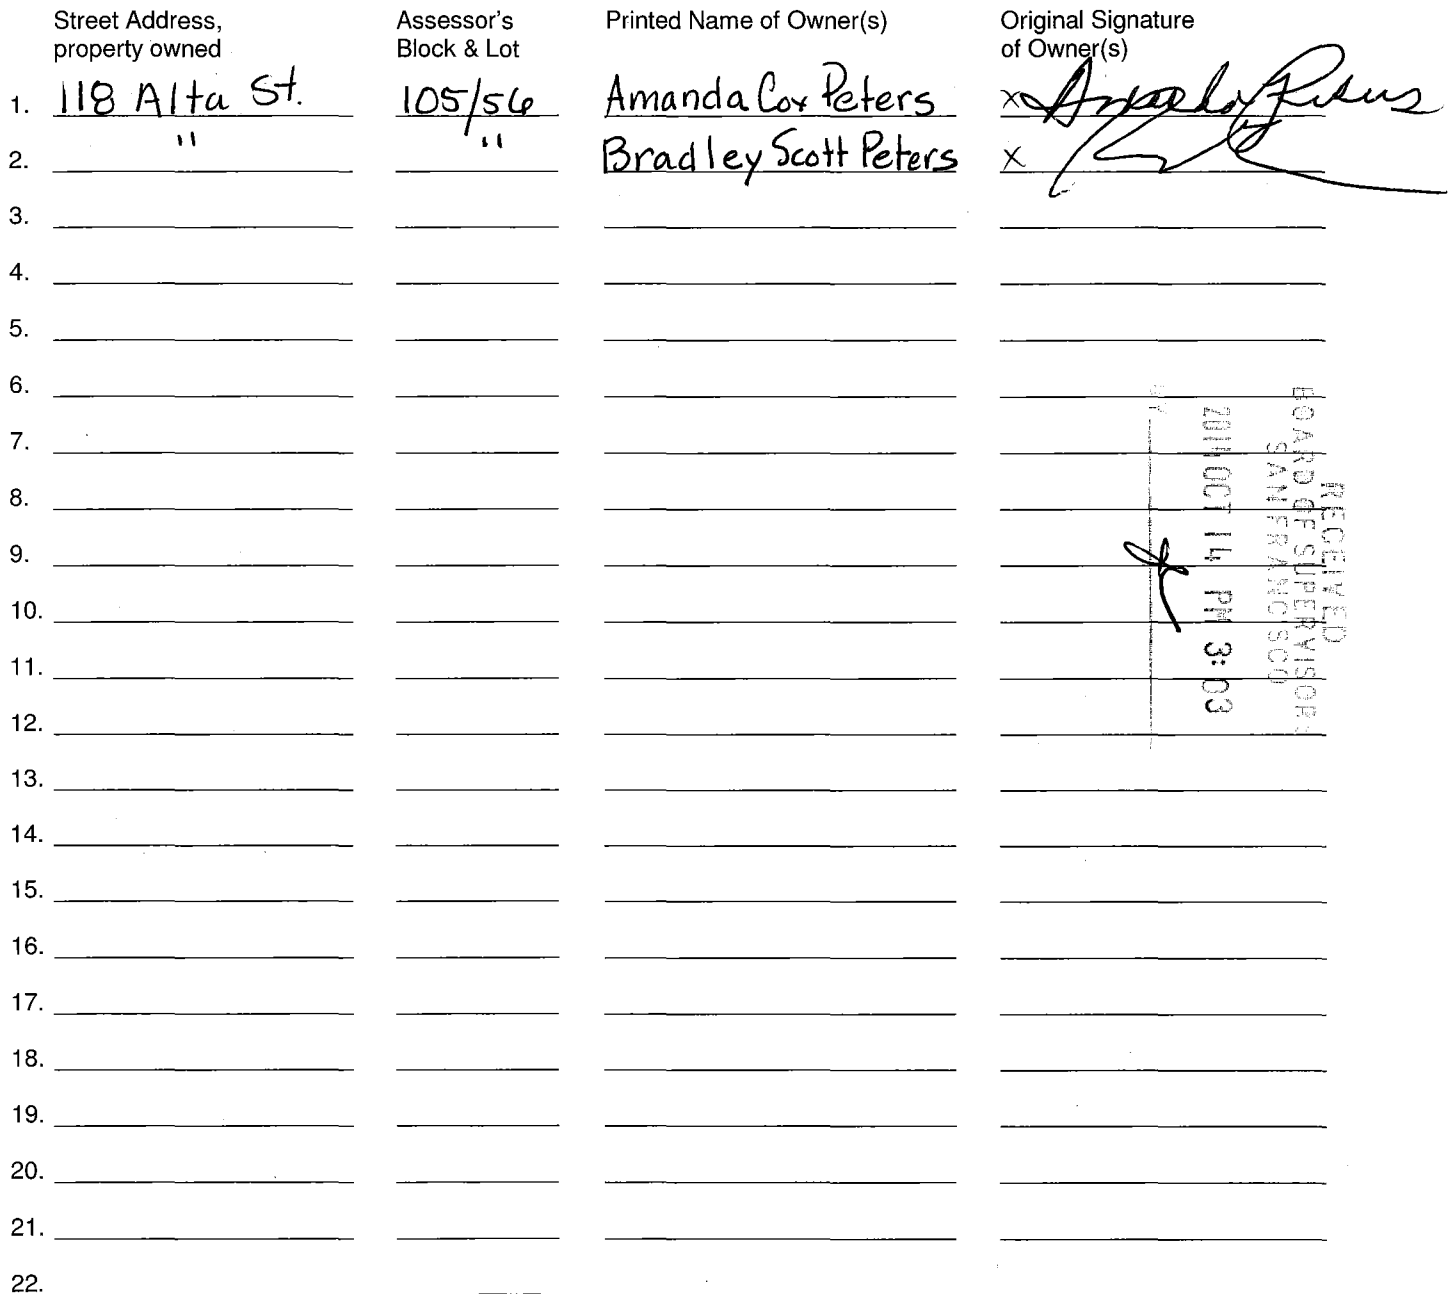 Street Address, property owned Assessor's Block & Lot Printed Name of Owner(s) Original Signature of Owner(s)
1. 118 Alta St. 105/56 Amanda Cox Peters x Amanda Peters
2. " " Bradley Scott Peters x
3.
4.
5.
6.
7.
8.
9.
10.
11.
12.
13.
14.
15.
16.
17.
18.
19.
20.
21.
22.
RECEIVED
BOARD OF SUPERVISORS
SAN FRANCISCO
OCT 14 PM 3:03